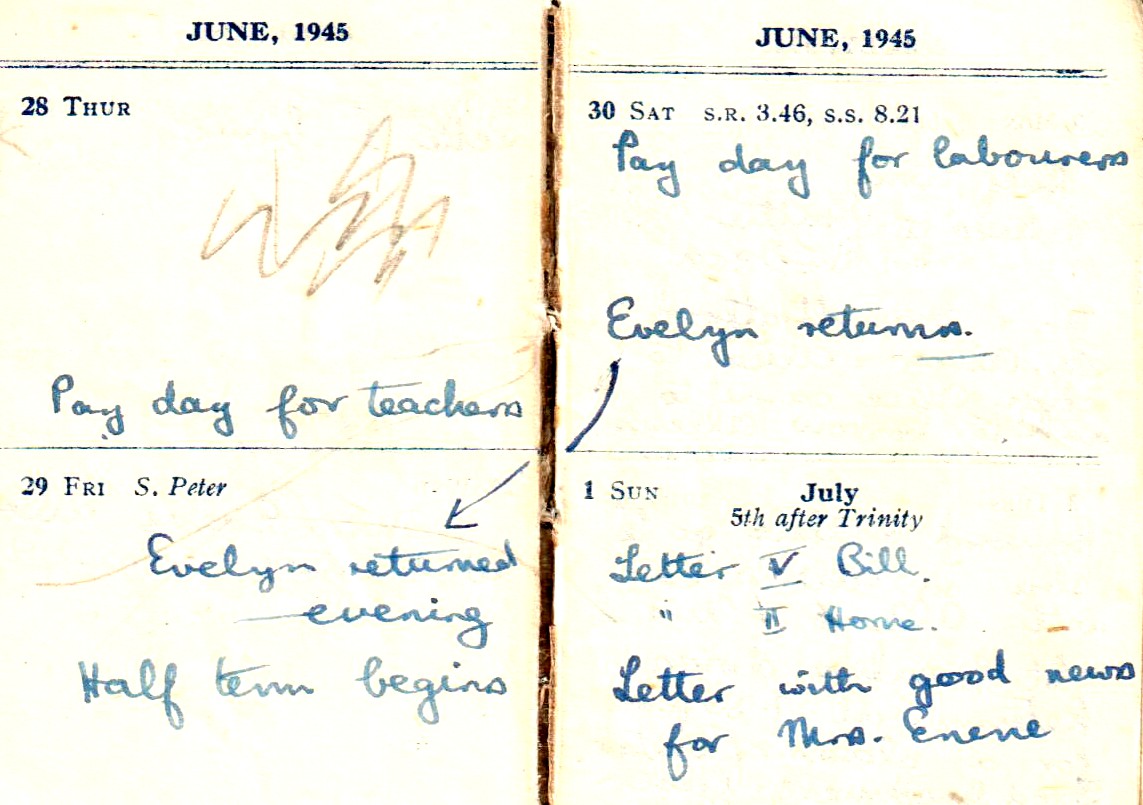 JUNE, 1945
28 THUR
Pay day for teachers
29 FRI S. Peter
Evelyn returned
evening
Half term begins
JUNE, 1945
30 SAT S.R. 3.46, S.S. 8.21
Pay day for labourers
Evelyn returns.
1 SUN July
5th after Trinity
Letter V Bill.
" II Home.
Letter with good news
for Mrs. Enene